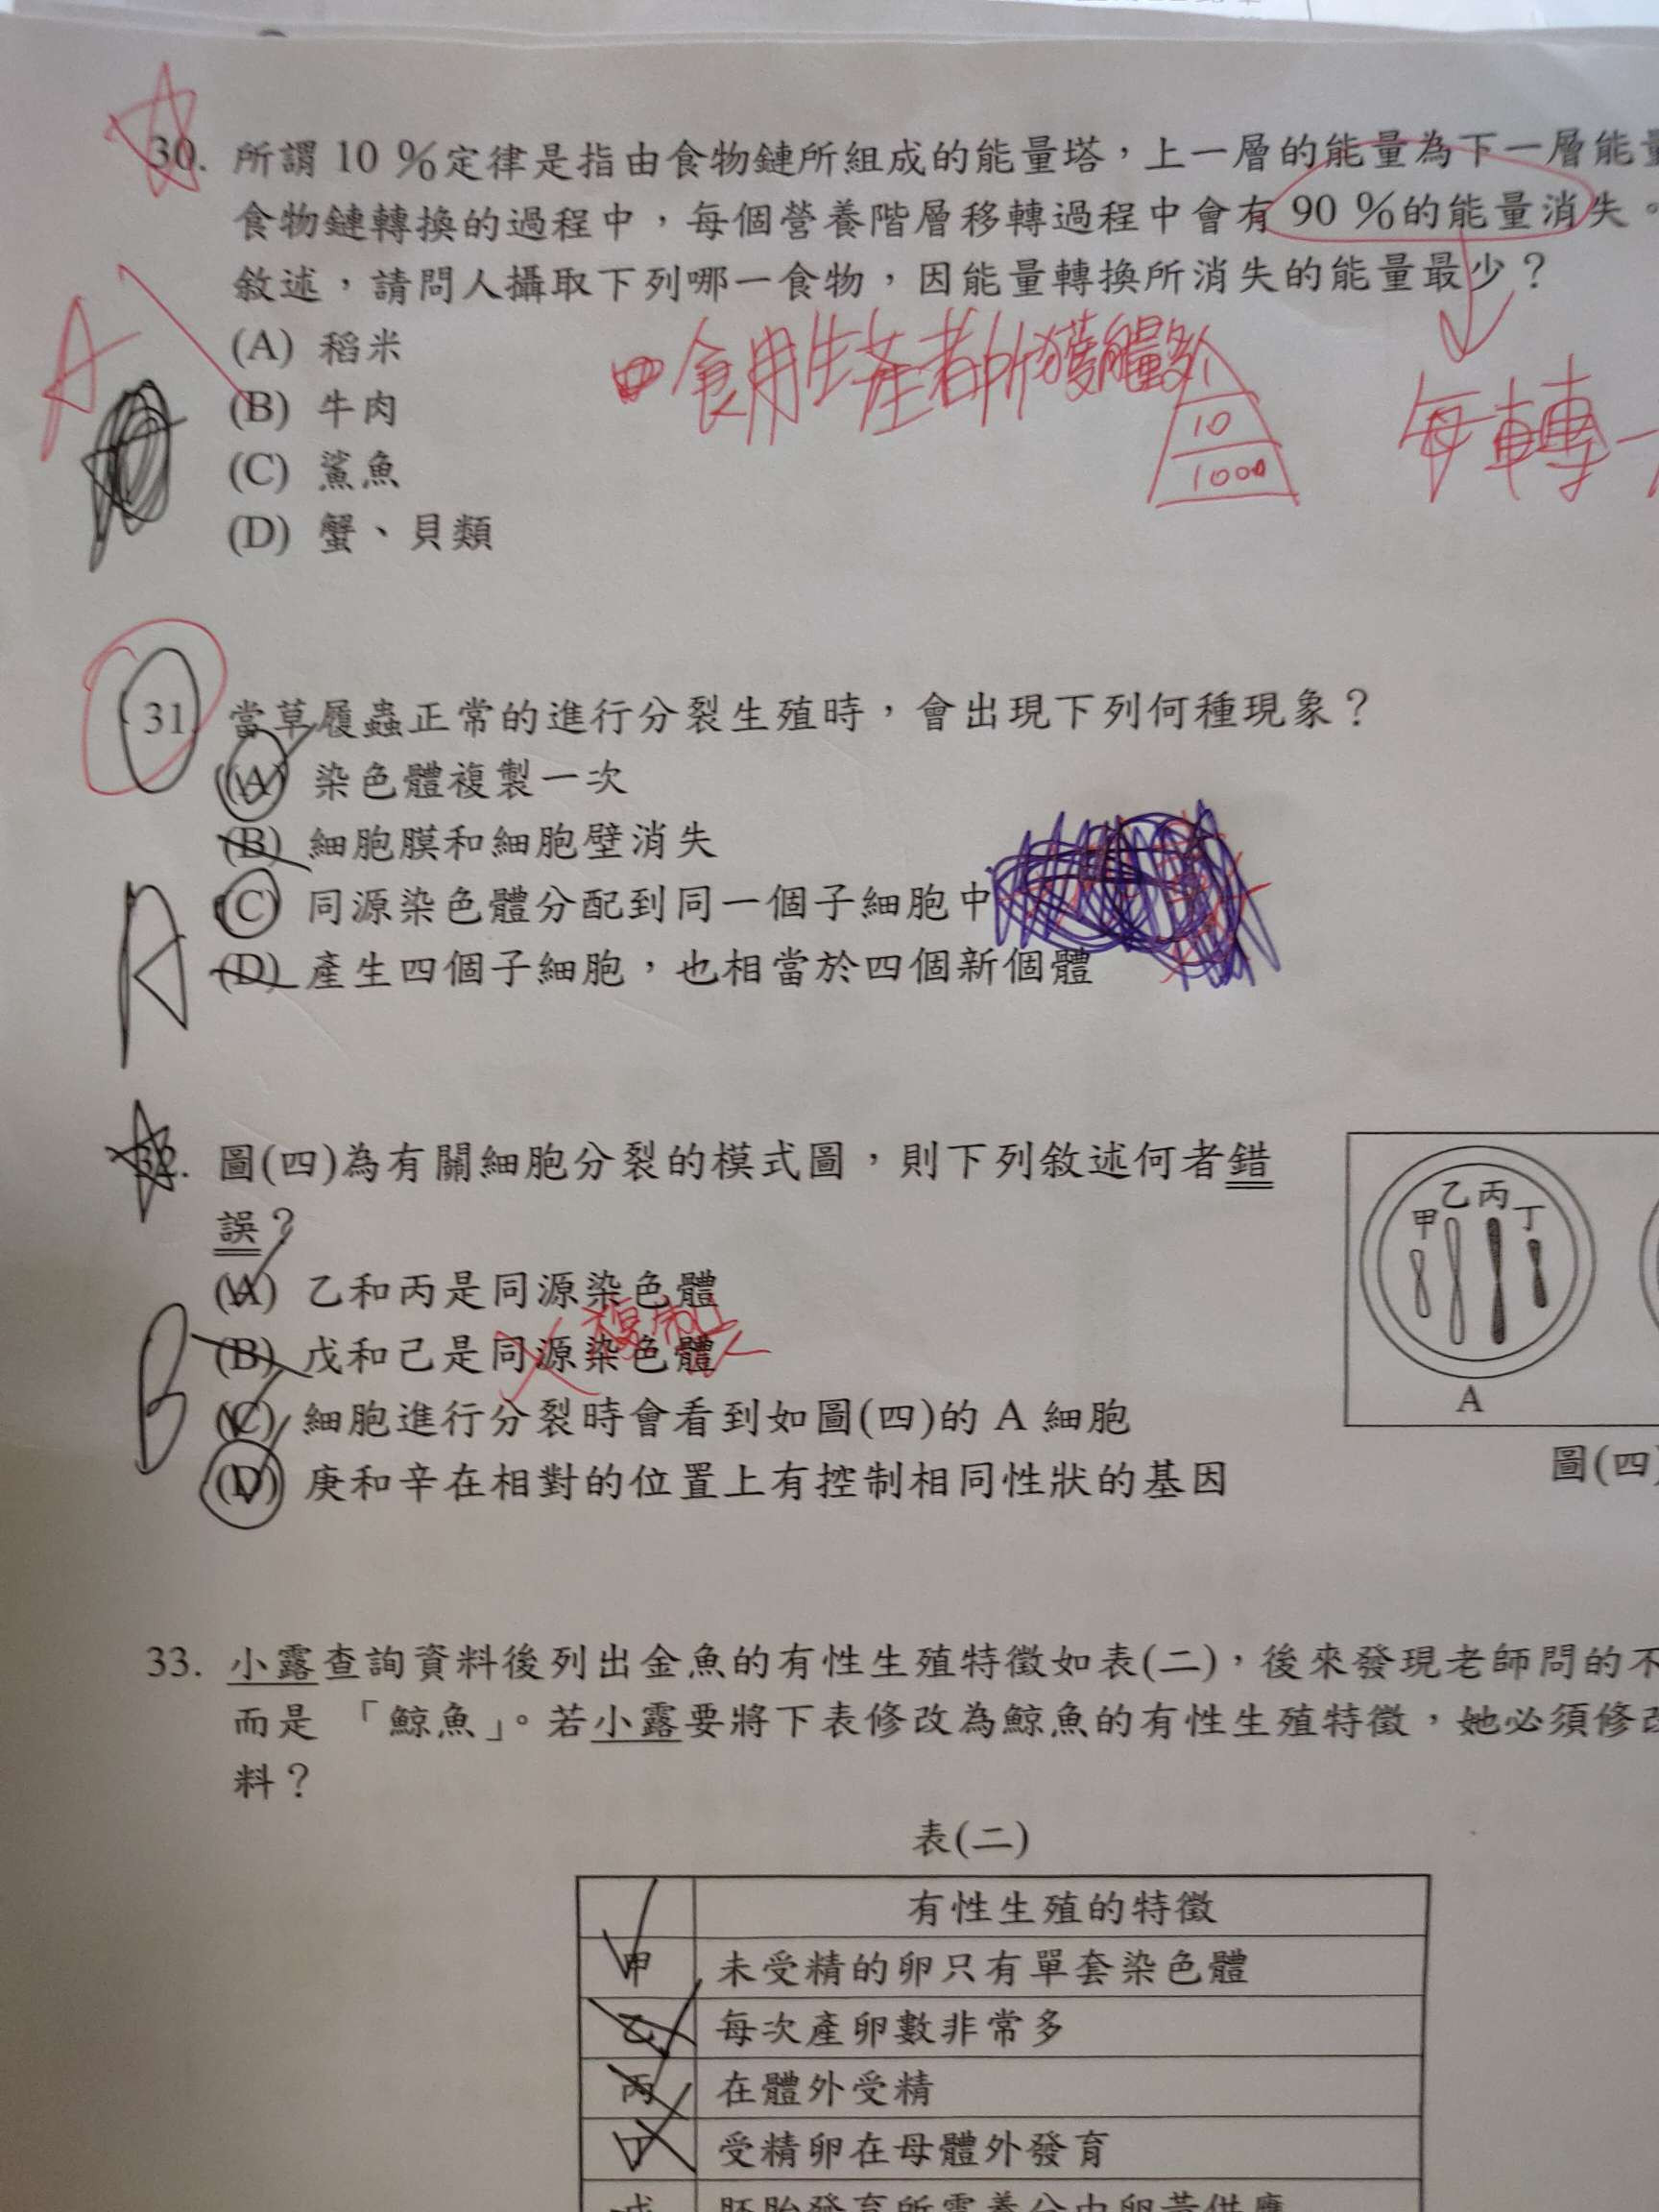 30. 所謂 10 %定律是指由食物鏈所組成的能量塔，上一層的能量為下一層能量
食物鏈轉換的過程中，每個營養階層移轉過程中會有 90 %的能量消失。
敘述，請問人攝取下列哪一食物，因能量轉換所消失的能量最少？
(A) 稻米
食用生產者所獲能量多
A
(B) 牛肉
10
每轉一
(C) 鯊魚
1000
(D) 蟹、貝類
31. 當草履蟲正常的進行分裂生殖時，會出現下列何種現象？
(A) 染色體複製一次
(B) 細胞膜和細胞壁消失
(C) 同源染色體分配到同一個子細胞中
A
(D) 產生四個子細胞，也相當於四個新個體
32. 圖(四)為有關細胞分裂的模式圖，則下列敘述何者錯
誤？
甲 乙 丙 丁
(A) 乙和丙是同源染色體
複製
B
(B) 戊和己是同源染色體
(C) 細胞進行分裂時會看到如圖(四)的 A 細胞
A
(D) 庚和辛在相對的位置上有控制相同性狀的基因
圖(四)
33. 小露查詢資料後列出金魚的有性生殖特徵如表(二)，後來發現老師問的不
而是 「鯨魚」。若小露要將下表修改為鯨魚的有性生殖特徵，她必須修改
料？
表(二)
有性生殖的特徵
甲 未受精的卵只有單套染色體
乙 每次產卵數非常多
丙 在體外受精
丁 受精卵在母體外發育
戊 胚胎發育所需養分由卵黃供應